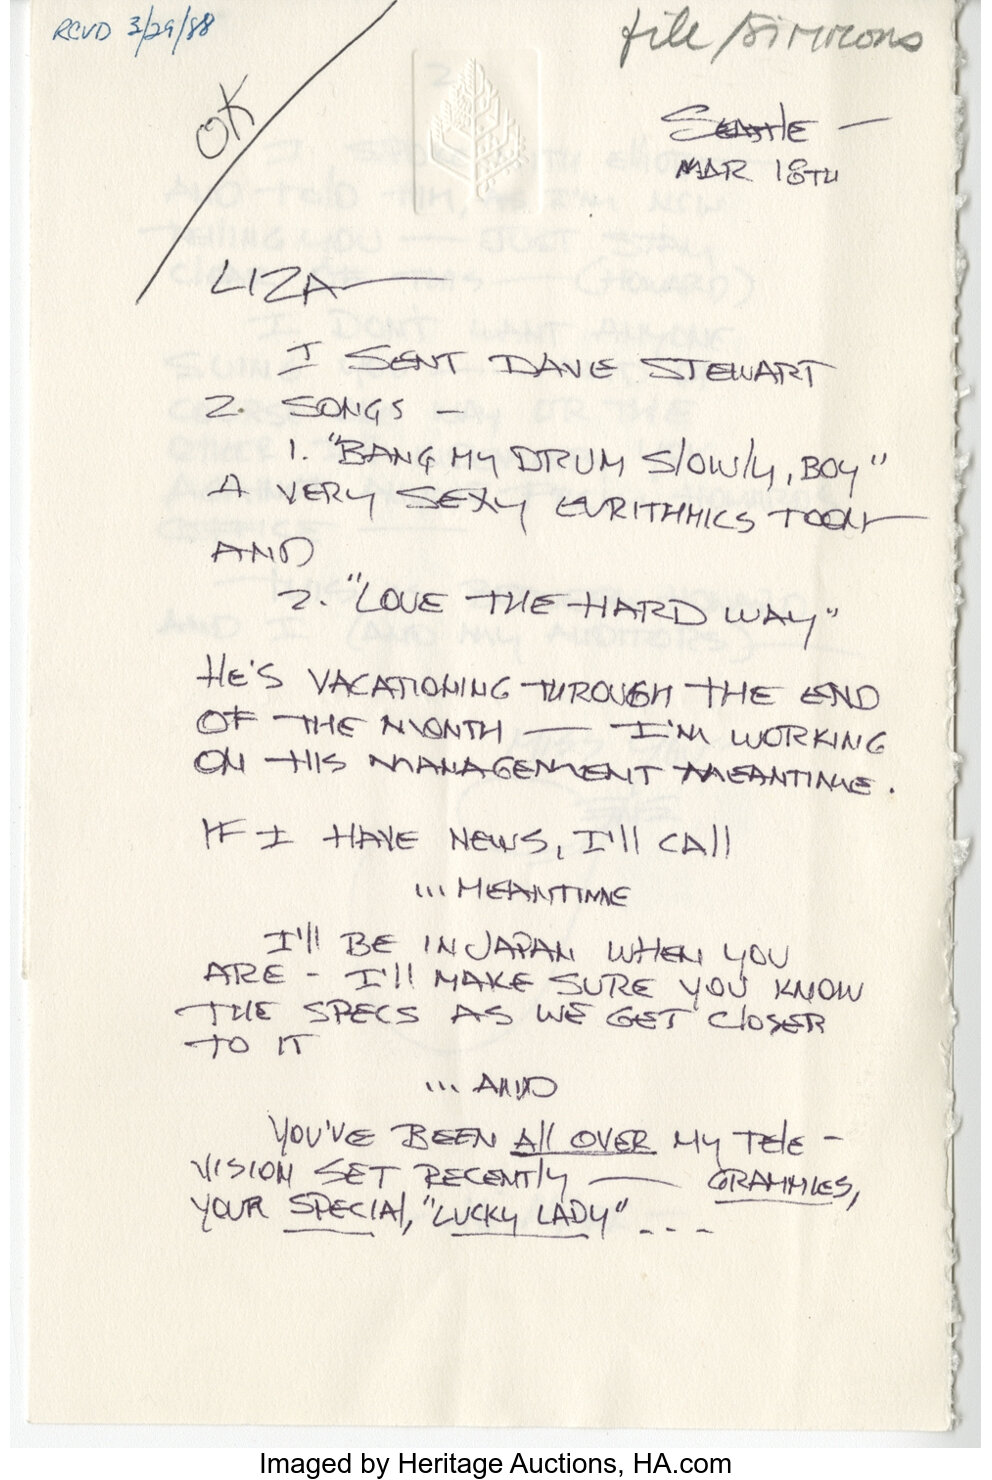 RCVD 3/29/88
file/Simmons
OK
Seattle —
MAR 18TH
LIZA—
I SENT DAVE STEWART
2. SONGS —
1. "BANG MY DRUM SLOWLY, BOY"
A VERY SEXY EURITHMICS TOON—
AND
2. "LOVE THE HARD WAY"
HE'S VACATIONING THROUGH THE END
OF THE MONTH — I'M WORKING
ON HIS MANAGEMENT MEANTIME.
IF I HAVE NEWS, I'll CAll
... MEANTIME
I'll BE IN JAPAN WHEN YOU
ARE - I'll MAKE SURE YOU KNOW
THE SPECS AS WE GET CloSER
TO IT
... AND
YOU'VE BEEN All OVER MY TElE -
VISION SET RECENTly — GRAMMIES,
YOUR SPECIAl, "LUCKY LADY" - - - -
Imaged by Heritage Auctions, HA.com